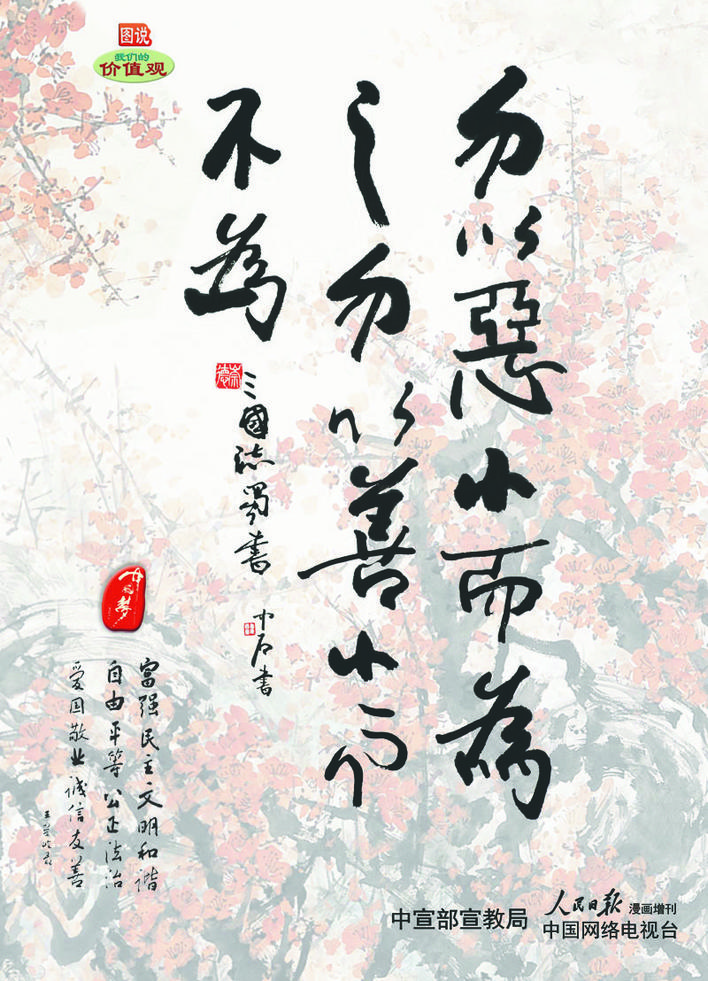 图说
我们的
价值观
勿以惡小而為
之勿以善小而
不為
崇德
三國志蜀書
中石書
中国梦
富强民主文明和谐
自由平等公正法治
爱国敬业诚信友善
中宣部宣教局
人民日报 漫画增刊
中国网络电视台